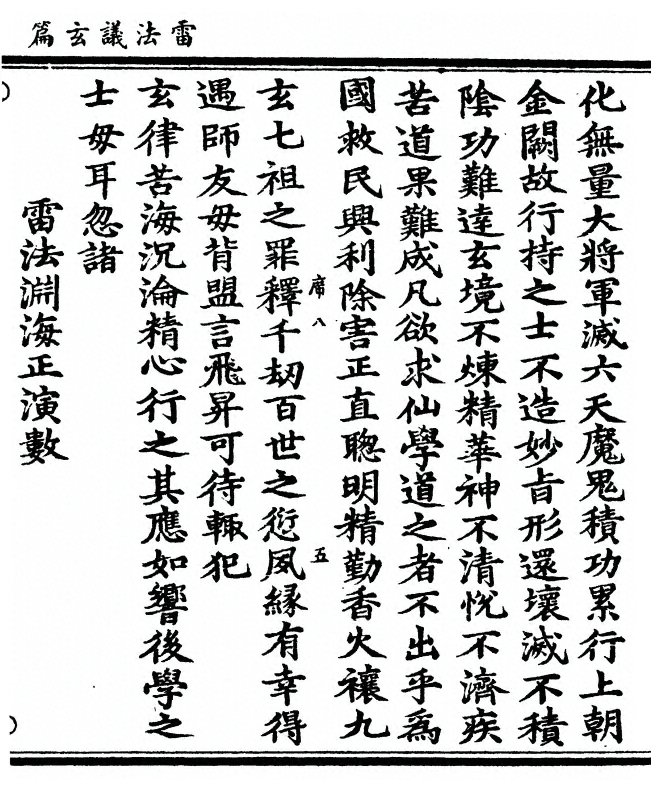 雷法議玄篇
化無量大將軍滅六天魔鬼積功累行上朝
金闕故行持之士不造妙旨形還壞滅不積
陰功難達玄境不煉精華神不清悅不濟疾
苦道果難成凡欲求仙學道之者不出乎為
國救民興利除害正直聰明精勤香火禳九
席八
五
玄七祖之罪釋千劫百世之愆夙緣有幸得
遇師友毋背盟言飛昇可待輒犯
玄律苦海沉淪精心行之其應如響後學之
士毋耳忽諸
雷法淵海正演數